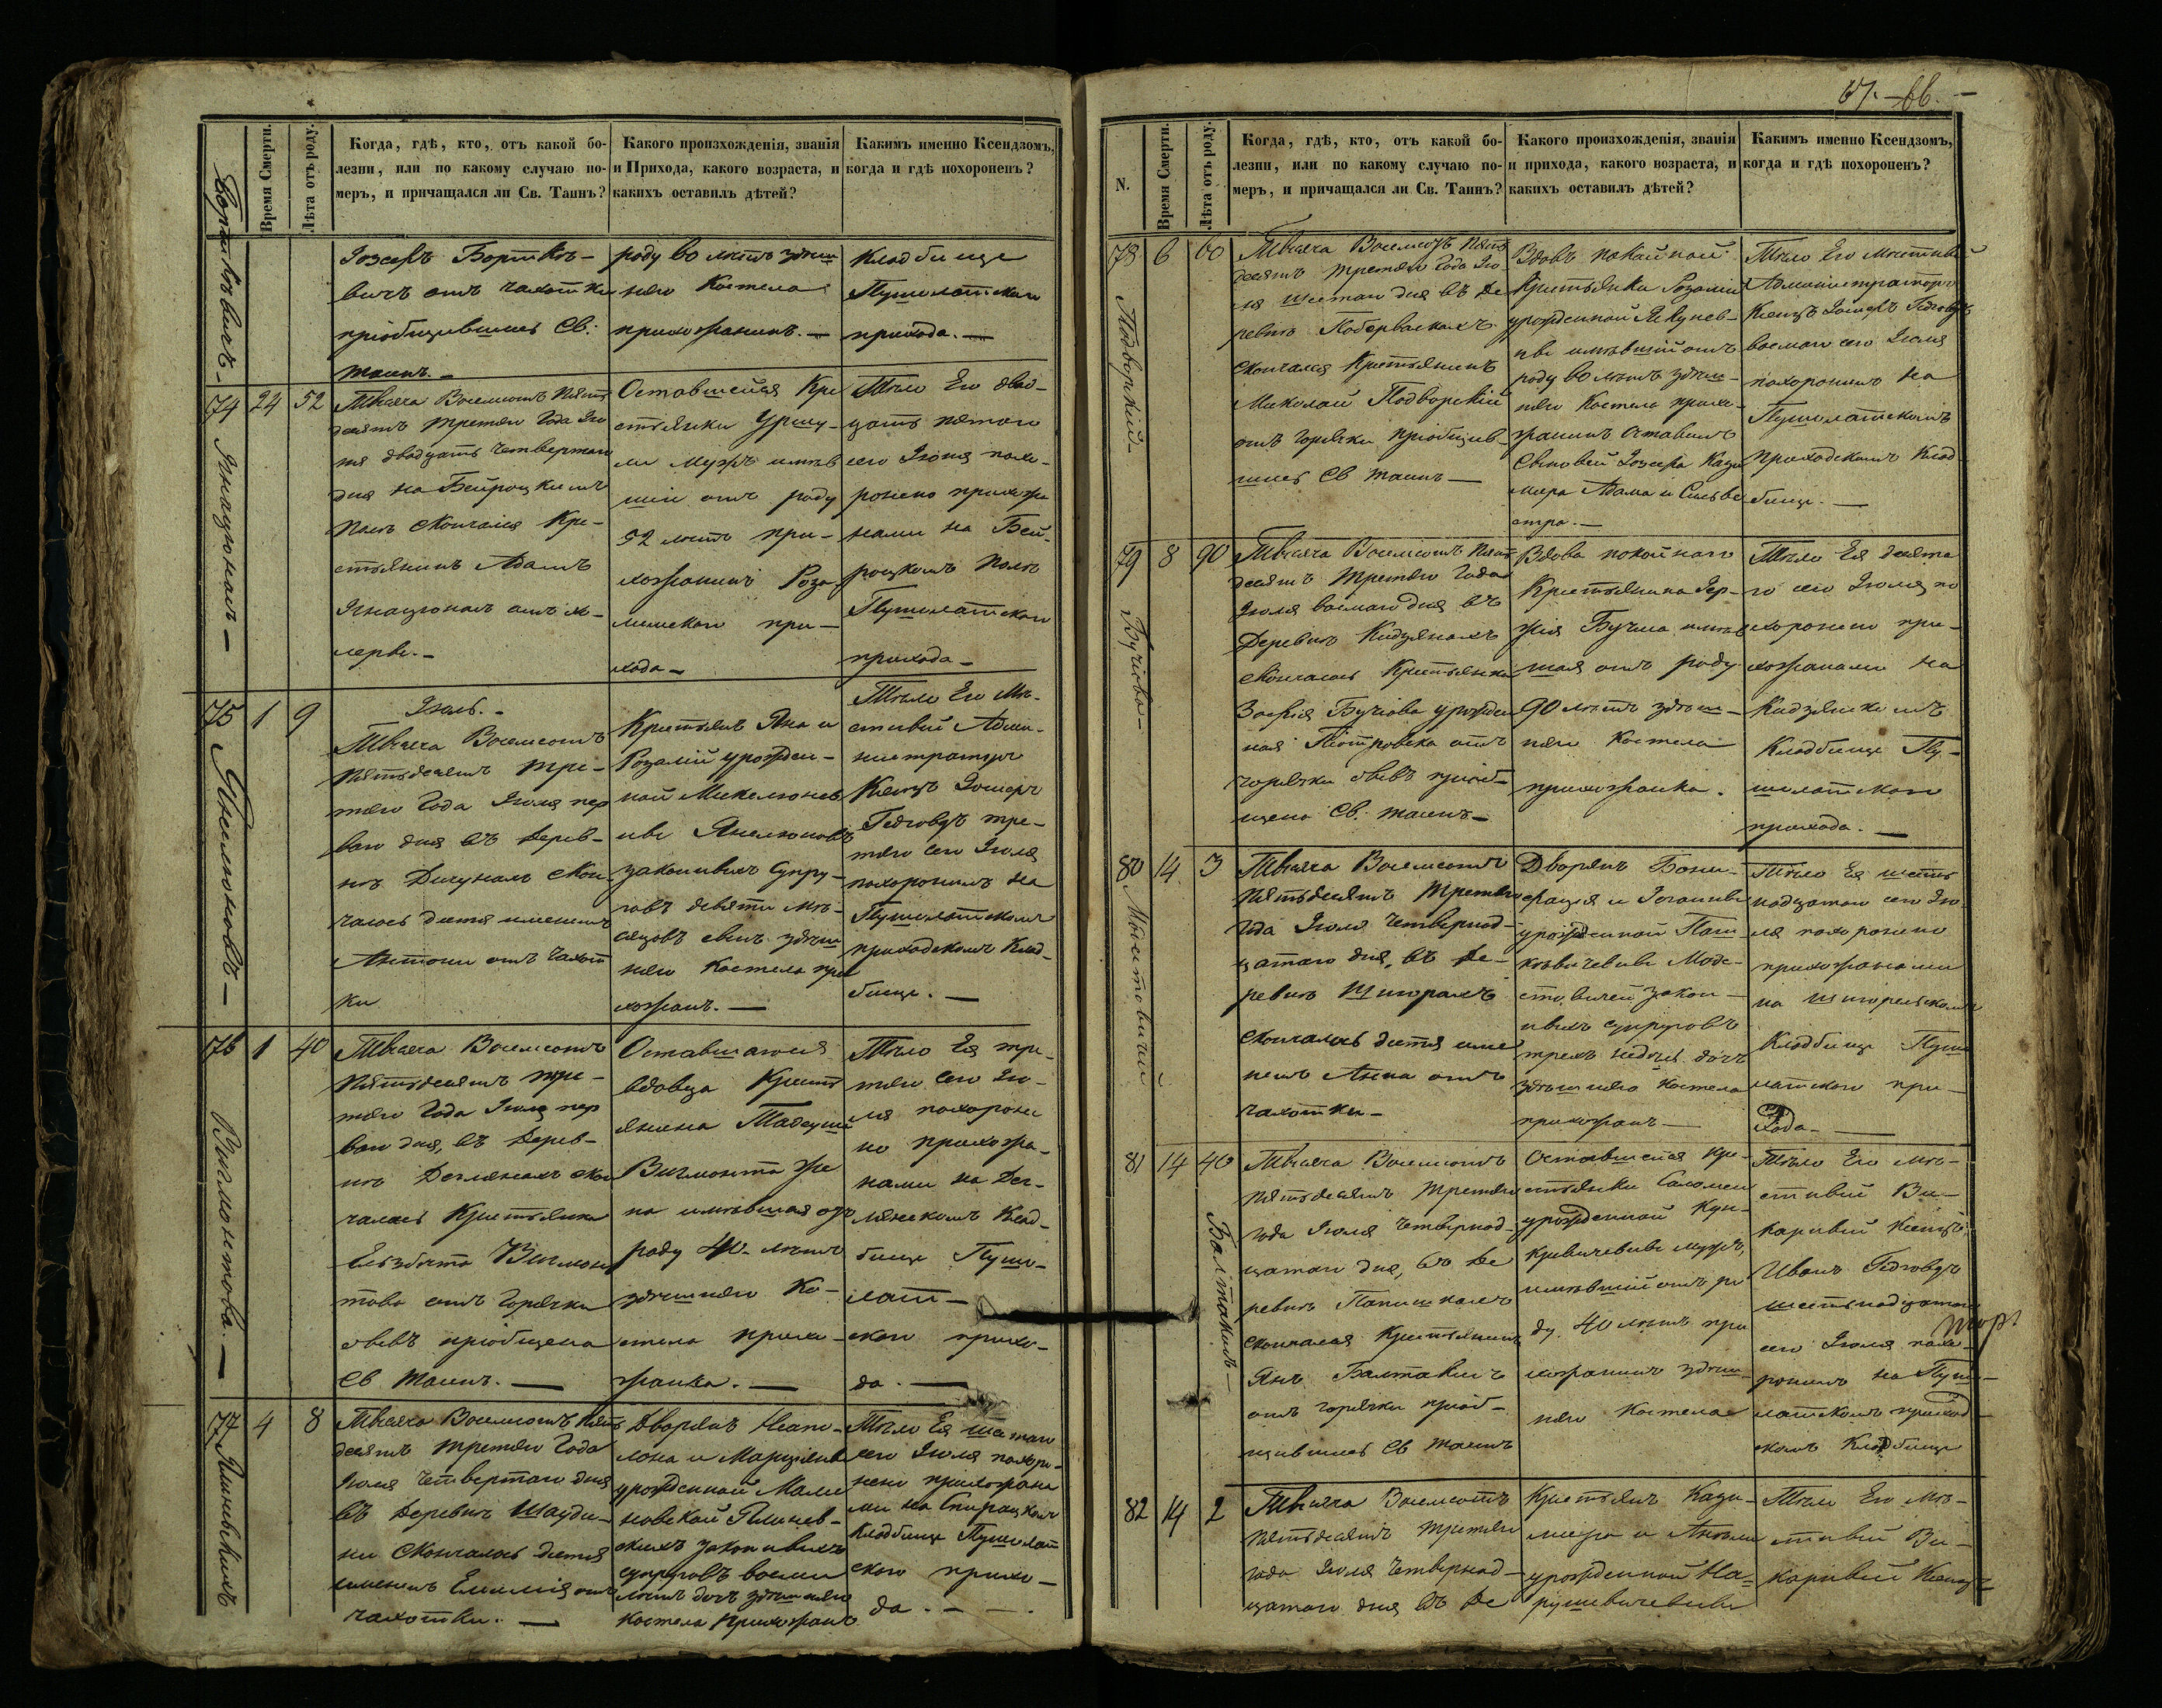 67. 66.
Время Смерти.
Лѣта отъ роду.
Когда, гдѣ, кто, отъ какой бо-
лезни, или по какому случаю по-
меръ, и причащался ли Св. Таинъ?
Какого произхожденія, званія
и Прихода, какого возраста, и
какихъ оставилъ дѣтей?
Какимъ именно Ксендзомъ,
когда и гдѣ похороненъ?
Іозефъ Бортке-
вичъ отъ чахотки
пріобщившись Св:
таинъ. —
роду 60 лѣтъ здѣш
няго Костела
прихожанинъ. —
Кладбище
Пушолатскаго
прихода. —
74
24
52
Тысяча Восемсотъ Пять
десятъ третяго Года Ію
ня двадцать четвертаго
дня на Бейроцкимъ
Полѣ скончался Кре-
стьянинъ Адамъ
отъ хо-
леры. —
Оставшейся Кре
стьянки Уршу-
ли Мужъ имѣв
шій отъ роду
52 лѣтъ при-
хожанинъ Роза
лимскаго при-
хода —
Тѣло Его двад-
цать пятаго
сего Іюня похо-
ронено прихожа
нами на Бей-
роцкомъ Полѣ
Пушолатскаго
прихода —
75
1
9
Іюль. —
Тысяча Восемсотъ
Пятьдесятъ тре-
тяго Года Іюля пер
ваго дня въ Дерев-
нѣ скон
чалось дитя именемъ
Антони отъ Чахот
ки
Крестьянъ Яна и
Розаліи урожден-
ной
законныхъ Супру-
говъ девяти мѣ-
сяцовъ сынъ здѣш
няго Костела при
хожанъ. —
Тѣло Его Мѣ-
стный Адми-
нистраторъ
Ксендзъ Іосифъ
Гедговдъ тре-
тяго сего Іюля
похоронилъ на
Пушолатскомъ
приходскомъ Клад-
бище. —
76
1
40
Тысяча Восемсотъ
Пятьдесятъ тре-
тяго Года Іюля пер
ваго дня, въ Дерев-
нѣ Деглянахъ скон
чалась Крестьянка
Ельзбета Вигмон
това отъ Горячки
Св таинъ. —
Оставшагося
вдовца Крест
янина Тадеуша
Вигмонта же
на имѣвшая отъ
роду 40 лѣтъ
здѣшняго Ко-
стела прихо-
жанка. —
Тѣло Ея тре-
тяго Сего Ію-
ля похороне
но прихожа-
нами на Дег-
лянскомъ Клад-
бище Пушо-
лат-
скаго прихо-
да. —
77
4
8
Тысяча Восемсотъ Пять
десятъ третяго Года
Іюля четвертаго дня
въ Деревнѣ Шауди-
ни скончалось дитя
именемъ Емилія отъ
чахотки. —
Дворянъ Напо-
лѣона и Марціянны
урожденной Мали
новской
скихъ законныхъ
супруговъ восьми
лѣтъ дочь здѣшняго
Костела прихожанъ
Тѣло Ея шестаго
сего Іюля похоро-
нено прихожана
ми на
Кладбище Пушолат
скаго прихо-
да. —
N.
Время Смерти.
Лѣта отъ роду.
Когда, гдѣ, кто, отъ какой бо-
лезни, или по какому случаю по-
меръ, и причащался ли Св. Таинъ?
Какого произхожденія, званія
и прихода, какого возраста, и
какихъ оставилъ дѣтей?
Какимъ именно Ксендзомъ,
когда и гдѣ похороненъ?
78
Подворскій —
6
60
Тысяча Восемсотъ Пять
десятъ третяго Года Ію
ля шестаго дня въ Де
ревнѣ
скончался Крестьянинъ
Миколай Подворскій
отъ горячки пріобщив-
шись Св таинъ —
Вдовъ покойной
Крестьянки Розаліи
урожденной Якунев-
ны имѣвшій отъ
роду 60 лѣтъ здѣш-
няго Костела прихо-
жанинъ оставилъ
Сыновей Іозефа Кази
мира Адама и Сильве
стра. —
Тѣло Его Мѣстный
Администраторъ
Ксендзъ Іосифъ Гедговдъ
восмаго сего Іюля
похоронилъ на
Пушолатскомъ
Приходскомъ Клад
бище. —
79
Бучіова —
8
90
Тысяча Восемсотъ Пять
десятъ третяго Года
Іюля восмаго дня въ
Деревнѣ Кидзянахъ
скончалась Крестьянка
Зофія Бучіова урожден
ная Піотровска отъ
горячки бывъ пріоб-
щена Св. таинъ —
Вдова покойнаго
Крестьянина Гер-
жія Бучіа имѣв
шая отъ роду
90 лѣтъ здѣш-
няго Костела
прихожанка.
Тѣло Ея десята
го сего Іюля по
хоронено при-
хожанами на
Кидзянскимъ
Кладбище Пу-
шолатскаго
прихода. —
80
Модестовичъ
14
3
Тысяча Восемсотъ
Пятьдесятъ третяго
Года Іюля четвернад-
цатаго дня, въ Де-
ревнѣ
скончалось дитя име
немъ Анна отъ
чахотки —
Дворянъ Бони-
фація и Іоганны
урожденной Паш
кевичевны Моде-
стовичей закон-
ныхъ супруговъ
трехъ недѣль дочь
здѣшняго Костела
прихожанъ —
Тѣло Ея шест
надцатаго сего Ію
ля похоронено
прихожанами
на
Кладбище Пушо
латскаго при-
хода. —
81
Балтакисъ —
14
40
Тысяча Восемсотъ
Пятьдесятъ третяго
года Іюля четвернад-
цатаго дня, въ Де
ревнѣ
скончался Крестьянинъ
Янъ Балтакисъ
отъ горячки пріоб-
щившись Св таинъ
Оставшейся Кре-
стьянки Саломеи
урожденной Кун-
кулевичевны мужъ,
имѣвшій отъ ро
ду 40 лѣтъ при
хожанинъ здѣш-
няго Костела
Тѣло Его Мѣ-
стный Ви-
карный Ксендзъ
Иванъ Гедговдъ
шестьнадцатаго
сего Іюля похо-
ронилъ на Пушо-
латскомъ приход-
скомъ Кладбище
82
14
2
Тысяча Восемсотъ
Пятьдесятъ третяго
года Іюля четвернад-
цатаго дня въ Де
Крестьянъ Кази-
мира и Анны
урожденной На-
рушевичевны
Тѣло Его Мѣ-
стный Ви-
карный Ксендзъ